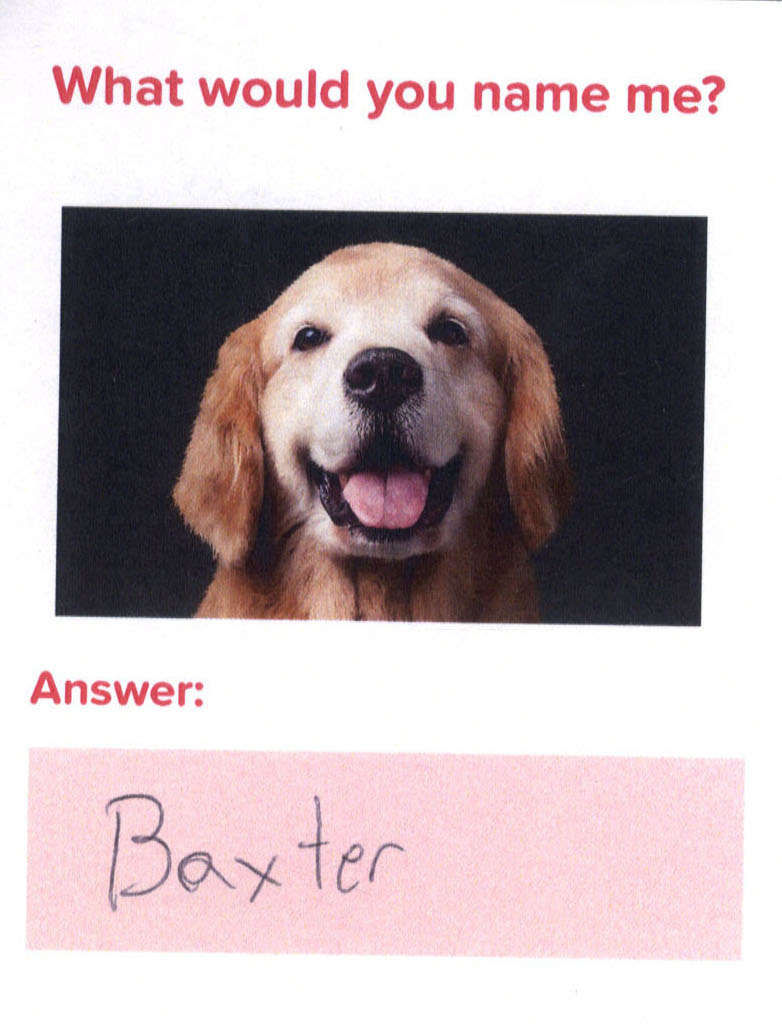 What would you name me?
Answer:
Baxter